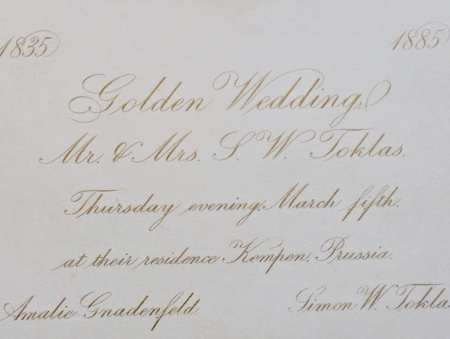 1835 1885
Golden Wedding
Mr. & Mrs. S. W. Toklas.
Thursday evening, March fifth.
at their residence Kempen, Prussia.
Amalie Gnadenfeld. Simon W. Tokla